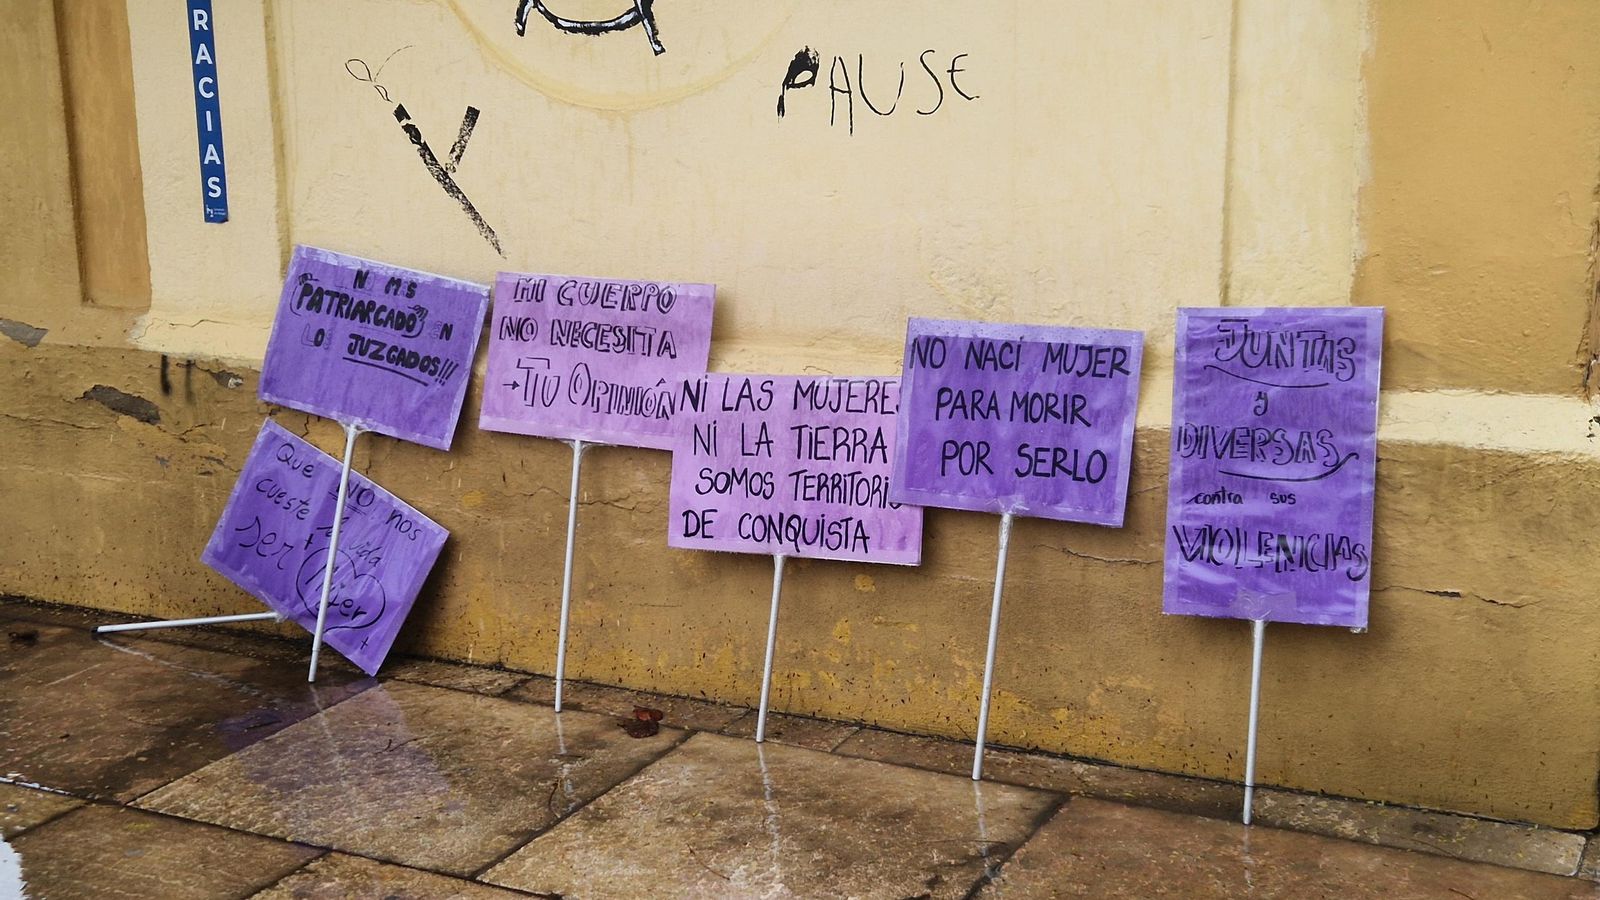 RACIAS
PAUSE
NO MÁS
PATRIARCADO EN
LOS JUZGADOS!!!
MI CUERPO
NO NECESITA
→TU OPINIÓN
NI LAS MUJERES
NI LA TIERRA
SOMOS TERRITORIO
DE CONQUISTA
NO NACÍ MUJER
PARA MORIR
POR SERLO
JUNTAS
y
DIVERSAS
contra sus
VIOLENCIAS
Que NO nos
cueste la vida
ser
Mujer